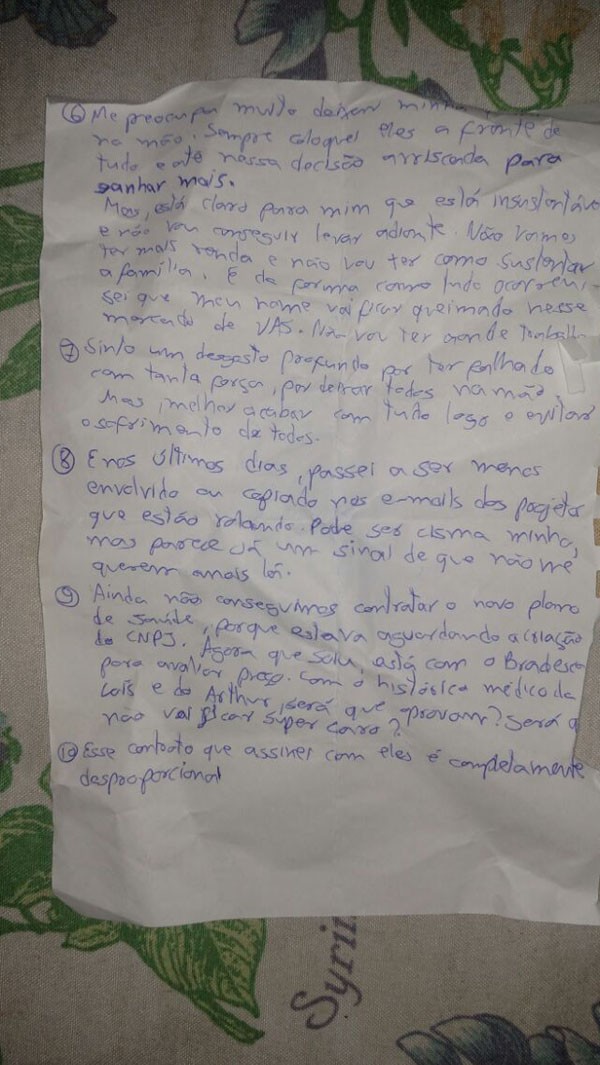 ⑥ Me preocupa muito deixar minha
na mão. Sempre coloquei eles a frente de
tudo e até nossa decisão arriscada para
ganhar mais.
Mas, está claro para mim que está insustentáve
e não vou conseguir levar adiante. Não vamos
ter mais renda e não vou ter como sustentar
a família. E da forma como tudo ocorreu,
sei que meu nome vai ficar queimado nesse
mercado de VAS. Não vou ter aonde trabalh
⑦ Sinto um desgosto profundo por ter falhado
com tanta força, por deixar todos na mão.
Mas, melhor acabar com tudo logo e evitar
o sofrimento de todos.
⑧ E nos últimos dias, passei a ser menos
envolvido ou copiado nos e-mails dos projetos
que estão rolando. Pode ser cisma minha,
mas parece já um sinal de que não me
querem mais lá.
⑨ Ainda não conseguimos contratar o novo plano
de saúde, porque estava aguardando a criação
do CNPJ. Agora que saiu, está com o Bradesco
para avaliar preço. Com o histórico médico da
Laís e do Arthur, será que aprovam? Será q
não vai ficar super caro?
⑩ Esse contrato que assinei com eles é completamente
desproporcional
Syrii